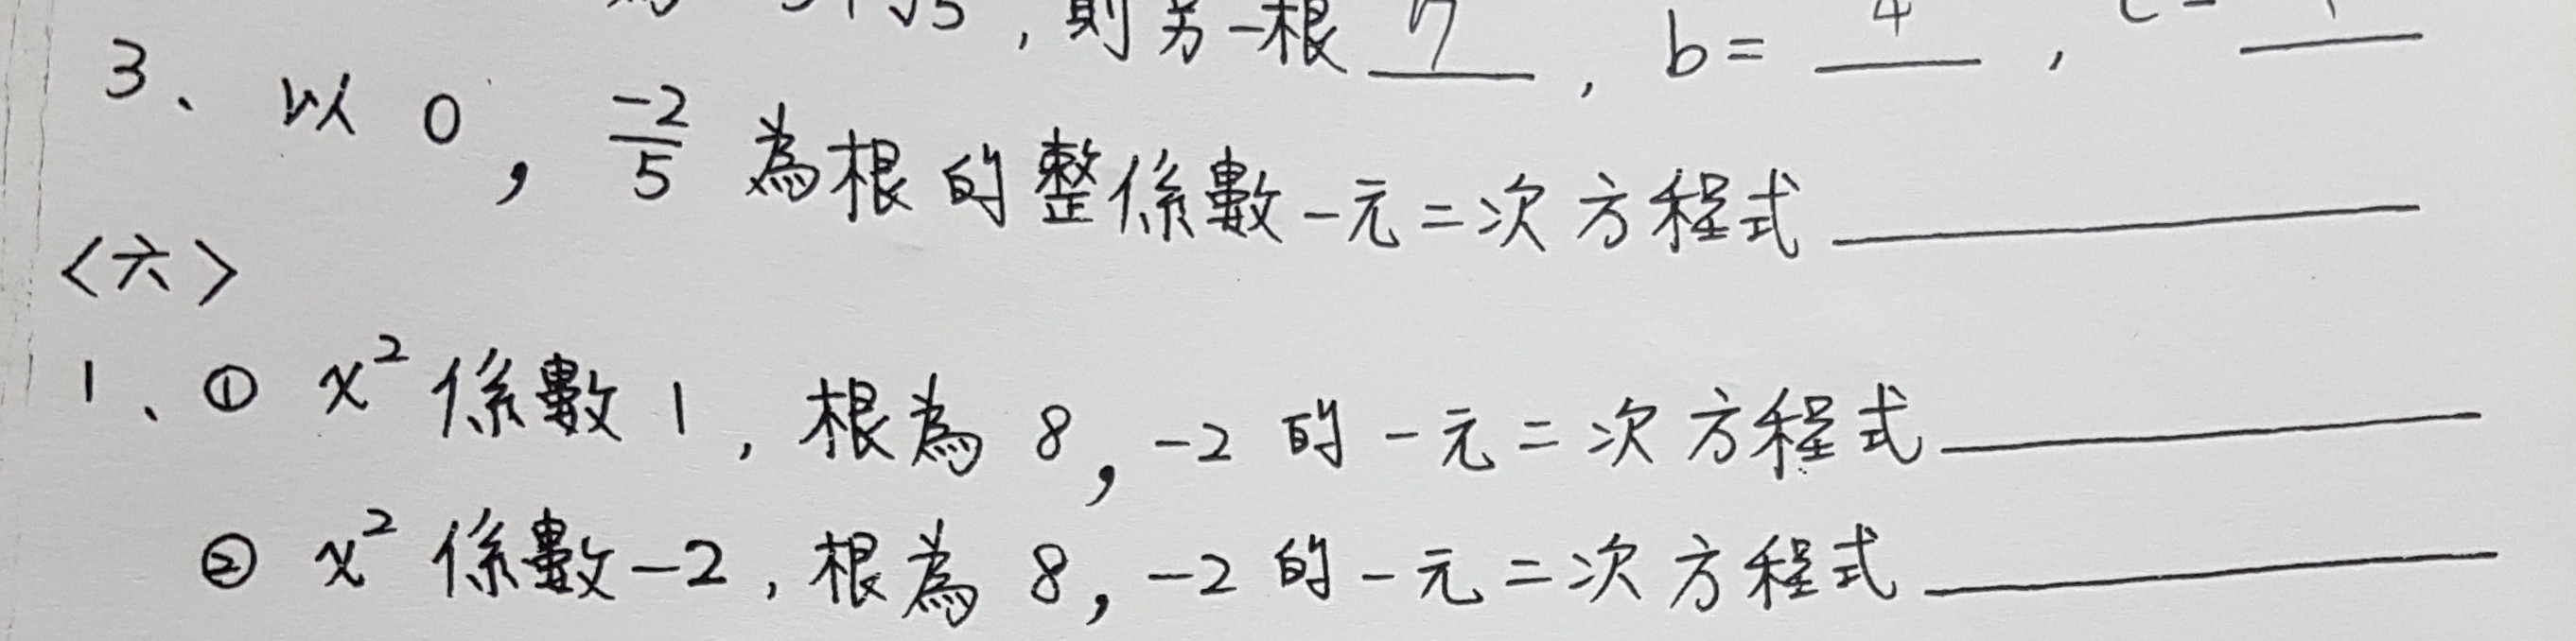 ，則另一根 7 ，b= 4 ，
3、以 0，-2/5 為根的整係數一元二次方程式______
<六>
1、① x² 係數 1，根為 8，-2 的一元二次方程式______
② x² 係數 -2，根為 8，-2 的一元二次方程式______